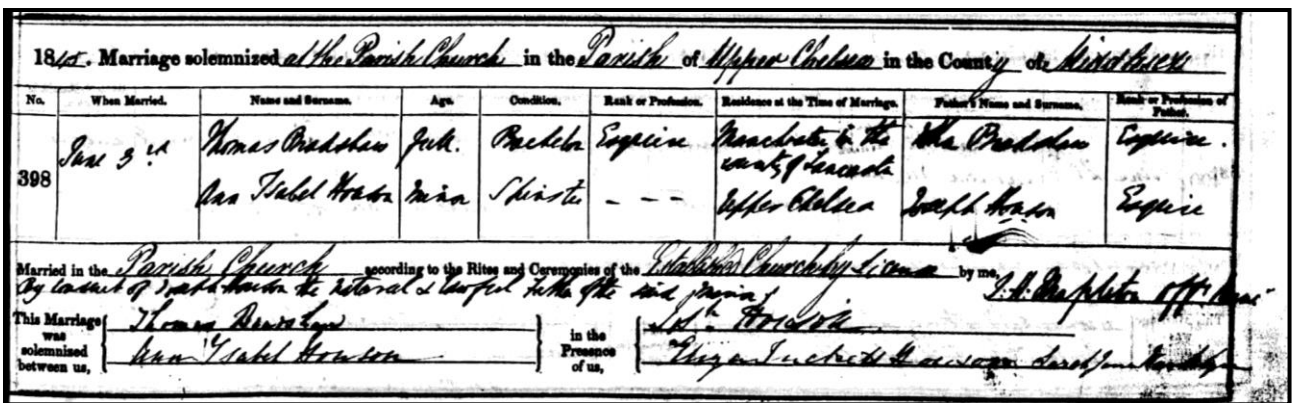 1845. Marriage solemnized at the Parish Church in the Parish of Upper Chelsea in the County of Middlesex
No. When Married. Name and Surname. Age. Condition. Rank or Profession. Residence at the Time of Marriage. Father's Name and Surname. Rank or Profession of Father.
398 June 3rd Thomas Bradshaw Full. Bachelor Esquire Manchester in the county of Lancaster Bradshaw Esquire.
Ann Isabel Howson Minor Spinster - - - Upper Chelsea Joseph Howson Esquire
Married in the Parish Church according to the Rites and Ceremonies of the Established Church by License by me,
By consent of Joseph Howson the natural & lawful Father of the said minor J. H. Mapleton
This Marriage was solemnized between us, Thomas Bradshaw in the Presence of us, Josh Howson
Ann Isabel Howson Eliza Howson Sarah Jane